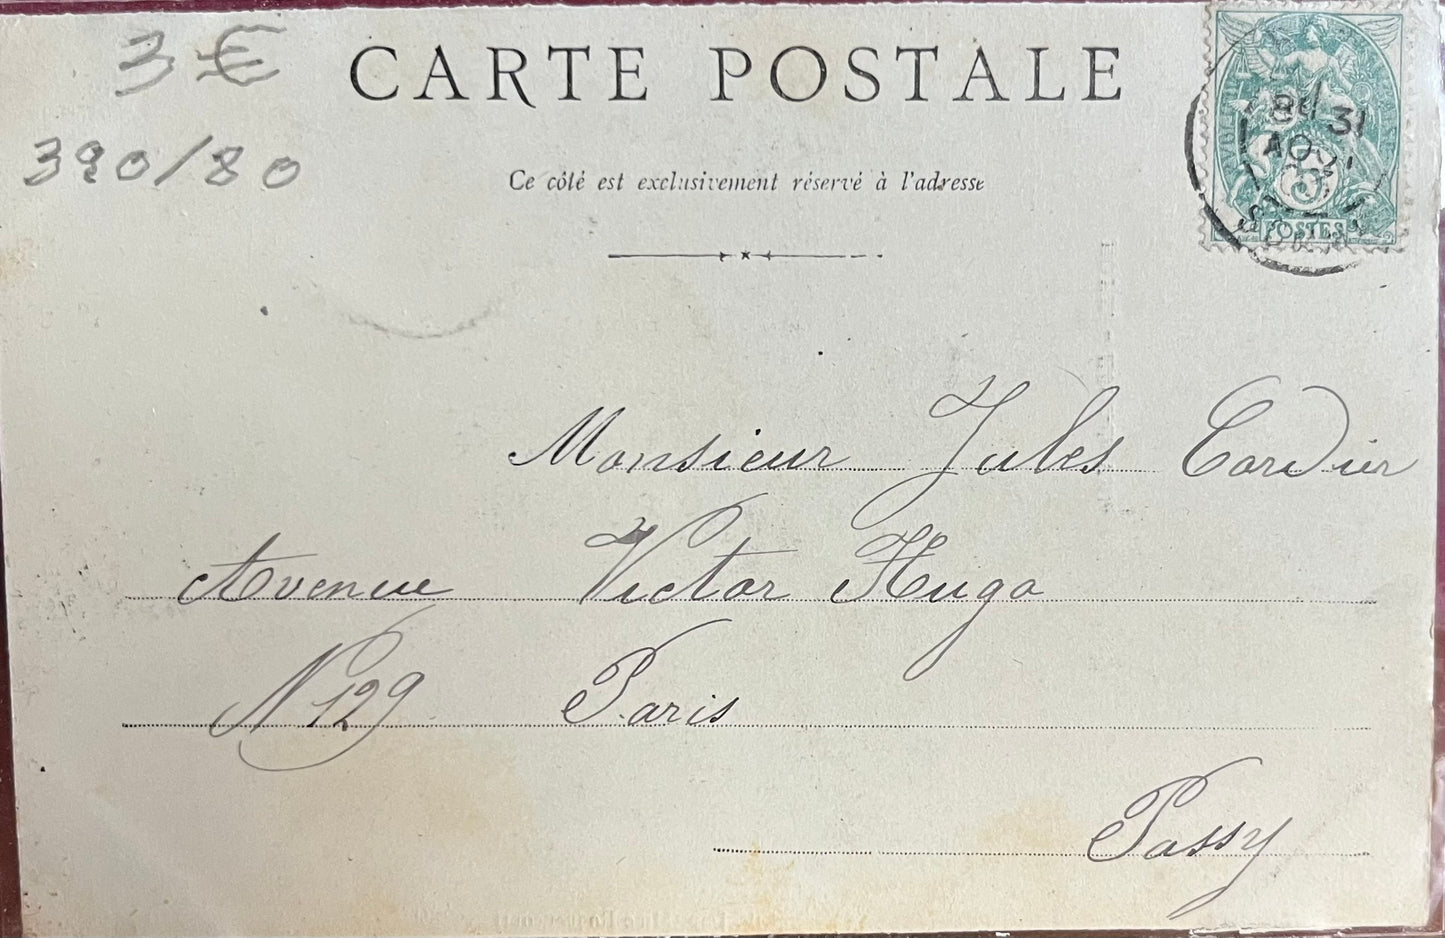 3 €
CARTE POSTALE
390/80
Ce côté est exclusivement réservé à l'adresse
8H 31
AOUT
5
POSTES
Monsieur Jules Cordier
Avenue Victor Hugo
N 129. Paris
Passy